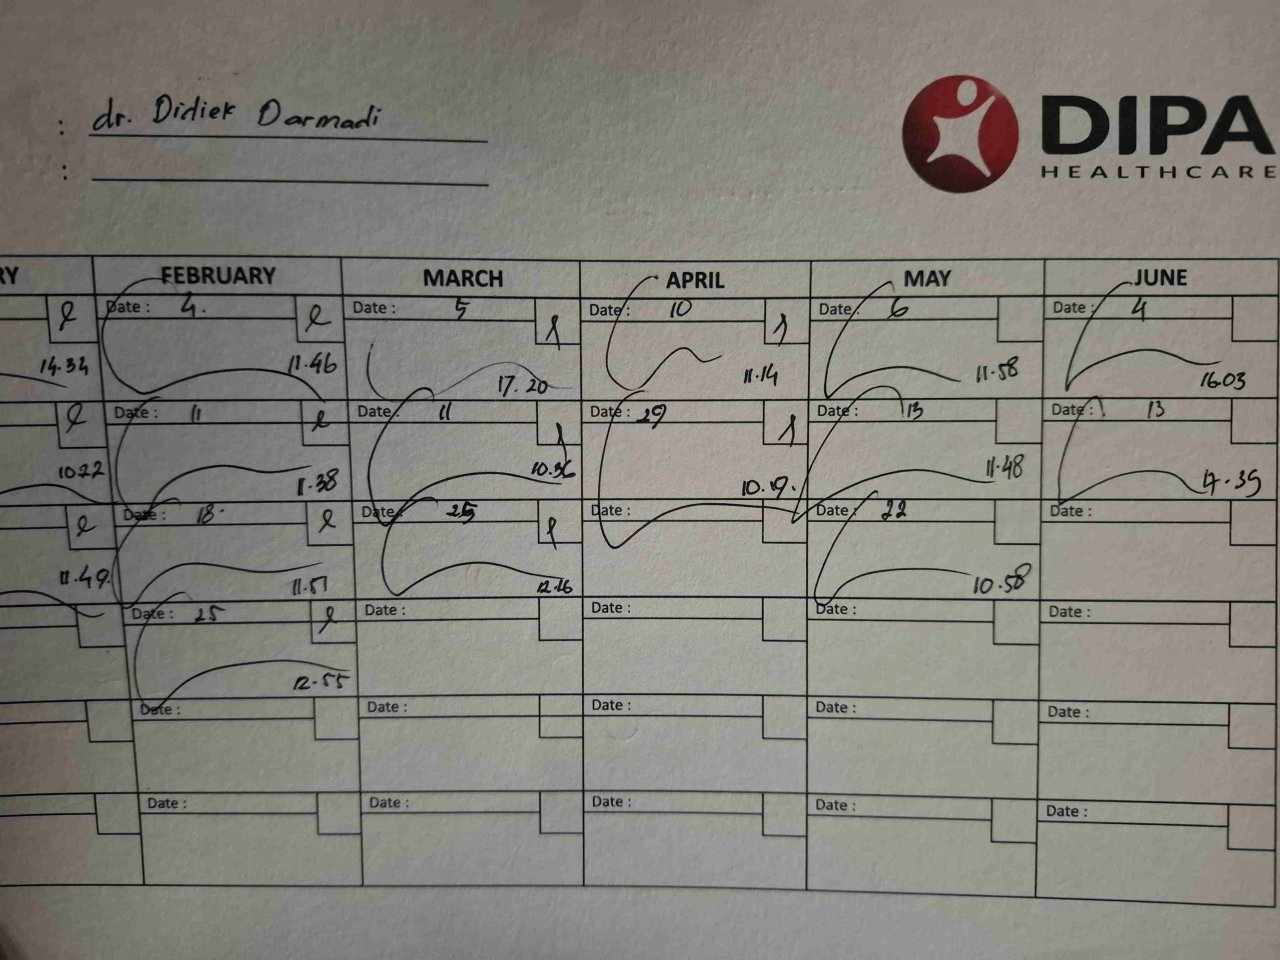 : dr. Didiek Darmadi
:
DIPA
HEALTHCARE
RY FEBRUARY MARCH APRIL MAY JUNE
Date : 4. Date : 5 Date : 10 Date : 6 Date : 4
14.34 11.46 17.20 11.14 11.58 16.03
Date : 11 Date : 11 Date : 29 Date : 13 Date : 13
10.22 11.38 10.36 10.19. 11.48 17.35
Date : 18. Date : 25 Date : Date : 22 Date :
11.49 11.51 12.16 10.58
Date : 25 Date : Date : Date : Date :
12.55
Date : Date : Date : Date : Date :
Date : Date : Date : Date : Date :